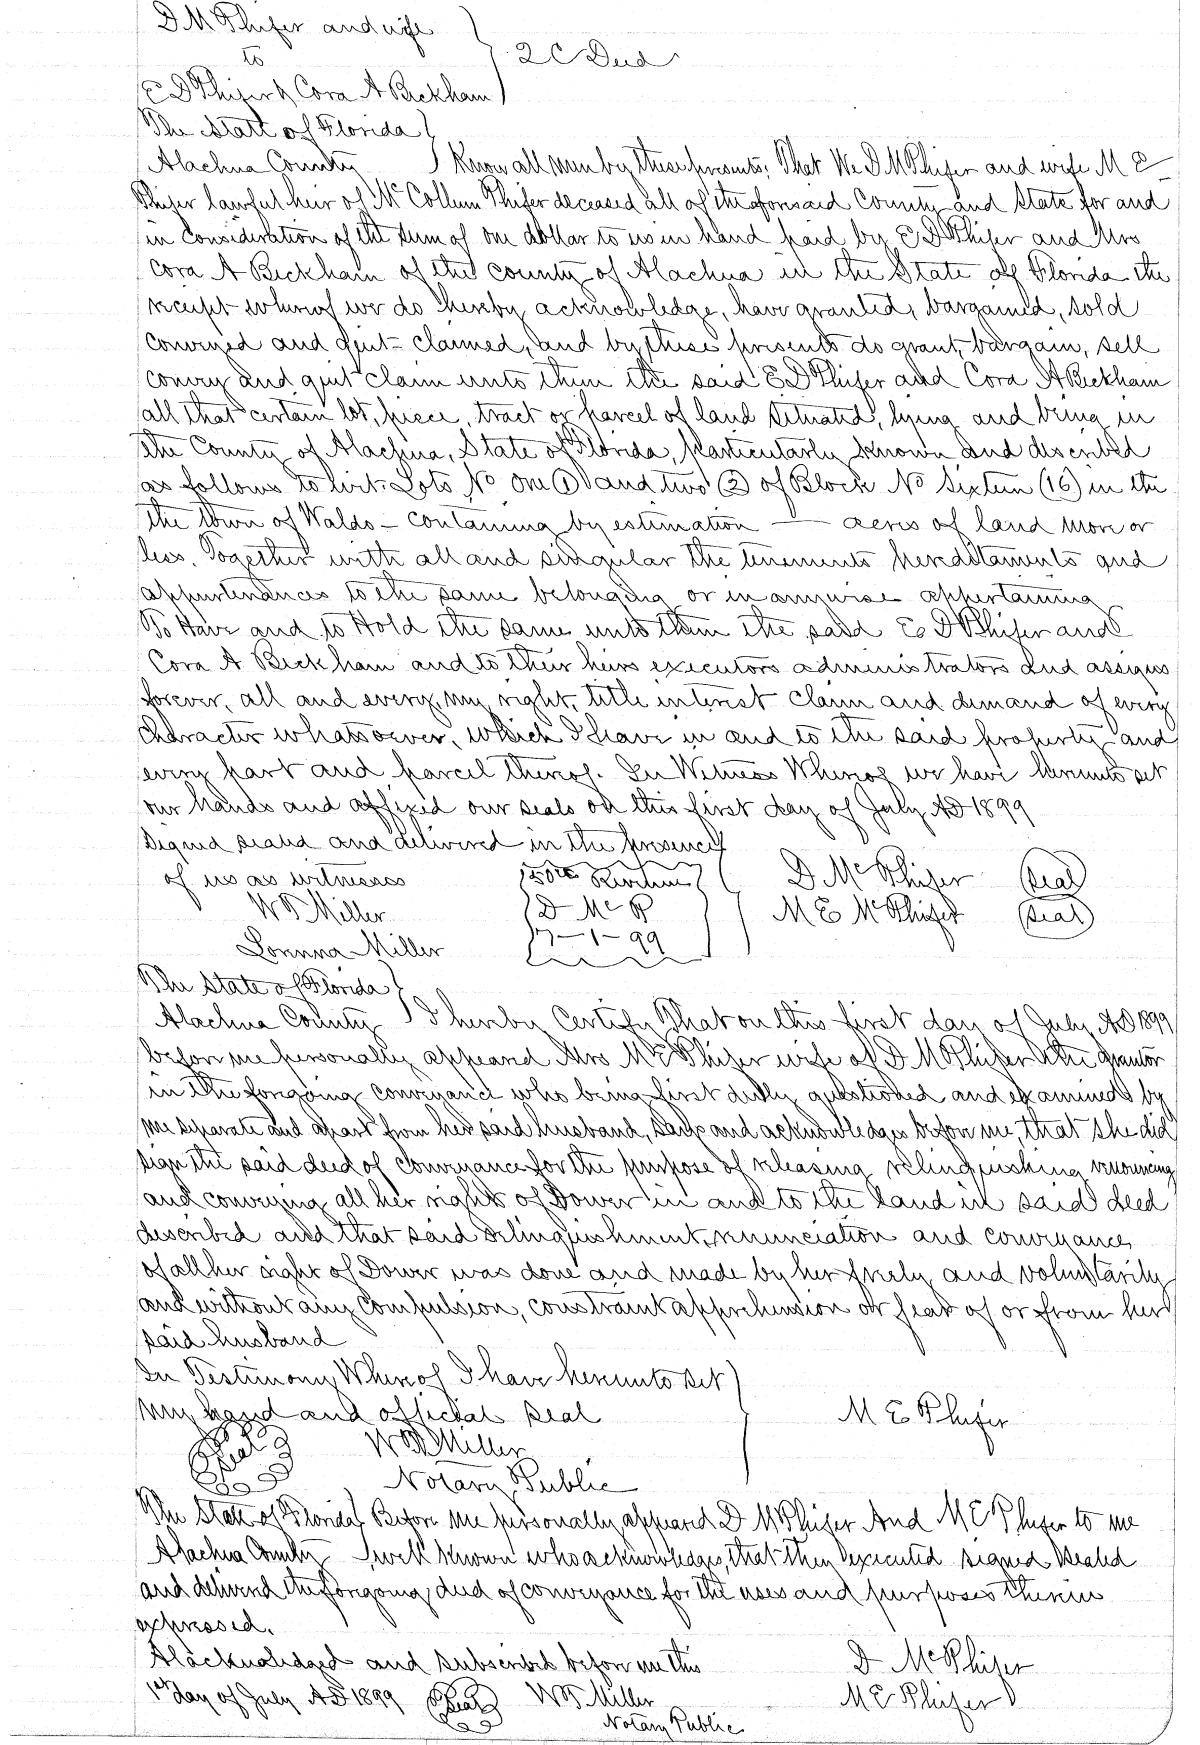 D M Phifer and wife
to
2 C Deed
E D Phifer & Cora A Beckham
The State of Florida
Alachua County Know all men by these presents: That We D M Phifer and wife M E
Phifer lawful heir of Mc Collum Phifer deceased all of the aforesaid County and State for and
in consideration of the sum of one dollar to us in hand paid by E D Phifer and Mrs
Cora A Beckham of the county of Alachua in the State of Florida the
receipt whereof we do hereby acknowledge, have granted, bargained, sold
conveyed and quit-claimed, and by these presents do grant, bargain, sell
convey and quit claim unto them the said E D Phifer and Cora A Beckham
all that certain lot, piece, tract or parcel of land situated, lying and being in
the County of Alachua, State of Florida, particularly known and described
as follows to wit: Lots No One (1) and two (2) of Block No Sixteen (16) in the
the town of Waldo - containing by estimation — acres of land more or
less. Together with all and singular the tenements hereditaments and
appurtenances to the same belonging or in anywise appertaining
To Have and to Hold the same unto them the said E D Phifer and
Cora A Beckham and to their heirs executors administrators and assigns
forever, all and every, my right, title interest claim and demand of every
character whatsoever, which I have in and to the said property and
every part and parcel thereof. In Witness Whereof we have hereunto set
our hands and affixed our seals on this first day of July AD 1899
Signed sealed and delivered in the presence
of us as witnesses 50cts Revenue D Mc Phifer (Seal)
W F Miller D Mc P M E McPhifer (Seal)
Miller 7-1-99
The State of Florida
Alachua County I hereby Certify That on this first day of July AD 1899
before me personally appeared Mrs M E Phifer wife of D M Phifer the grantor
in the foregoing conveyance who being first duly questioned and examined by
me separate and apart from her said husband, says and acknowledges before me, that she did
sign the said deed of conveyance for the purpose of releasing relinquishing renouncing
and conveying all her right of Dower in and to the land in said deed
described and that said relinquishment, renunciation and conveyance
of all her right of Dower was done and made by her freely and voluntarily
and without any compulsion, constraint apprehension or fear of or from her
said husband
In Testimony Whereof I have hereunto set
my hand and official seal M E Phifer
Seal W F Miller
Notary Public
The State of Florida Before me personally appeared D M Phifer And M E Phifer to me
Alachua County well known who acknowledges, that they executed signed sealed
and delivered the foregoing deed of conveyance for the uses and purposes therein
expressed.
Alacknoledged and subscribed before me this D McPhifer
1st day of July AD 1899 Seal W F Miller M E Phifer
Notary Public